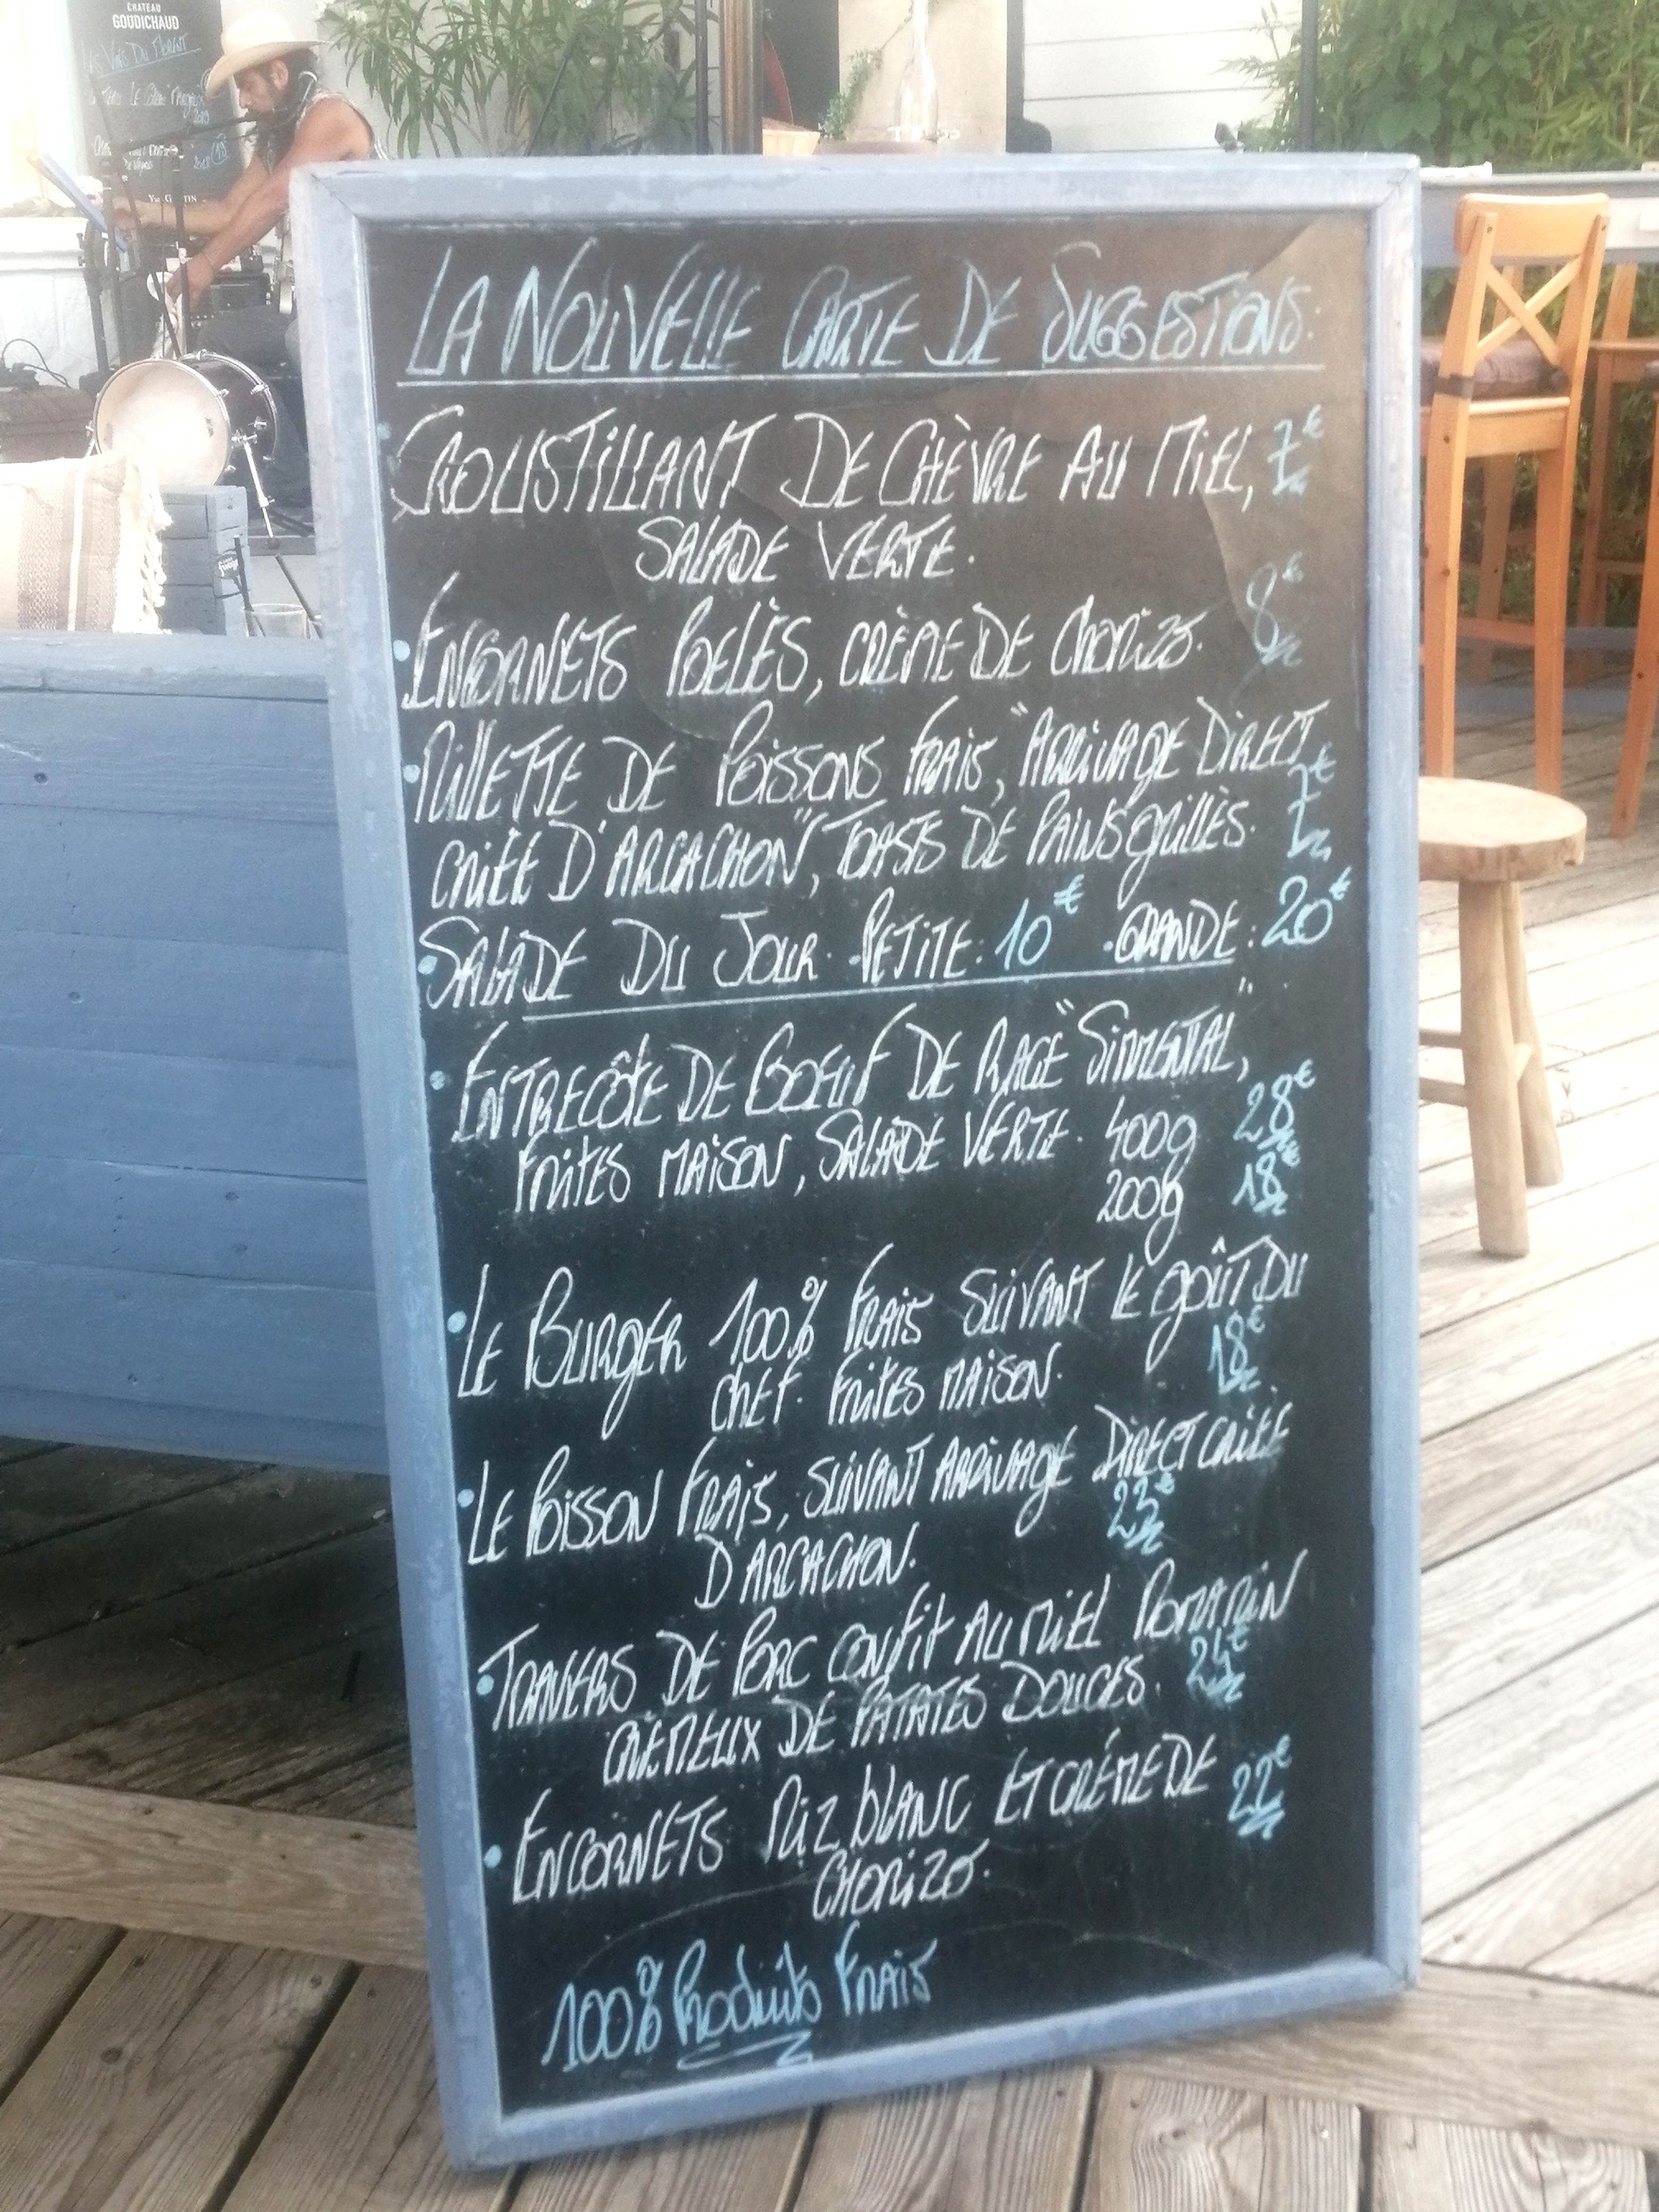 CHATEAU
GOUDICHAUD
LA NOUVELLE CARTE DE SUGGESTIONS.
CROUSTILLANT DE CHÈVRE AU MIEL, 7€
SALADE VERTE.
• ENCORNETS POELÈS, CRÈME DE CHORIZO. 8€
• RILLETTE DE POISSONS FRAIS, "ARRIVAGE DIRECT
CRIÉE D'ARCACHON", TOASTS DE PAINS GRILLÈS. 7€
• SALADE DU JOUR. • PETITE: 10€ • GRANDE: 20€
• ENTRECÔTE DE BOEUF DE RACE "SIMENTAL",
FRITES MAISON, SALADE VERTE. 400g 28€
200g 18€
• LE BURGER 100% FRAIS SUIVANT LE GOÛT DU
CHEF. FRITES MAISON. 18€
• LE POISSON FRAIS, SUIVANT ARRIVAGE DIRECT CRIÉE
D'ARCACHON. 23€
• TRAVERS DE PORC CONFIT AU MIEL ROMARIN
CRÈMEUX DE PATATES DOUCES. 24€
• ENCORNETS RIZ BLANC ET CRÉME DE 22€
CHORIZO.
100% PRODUITS FRAIS